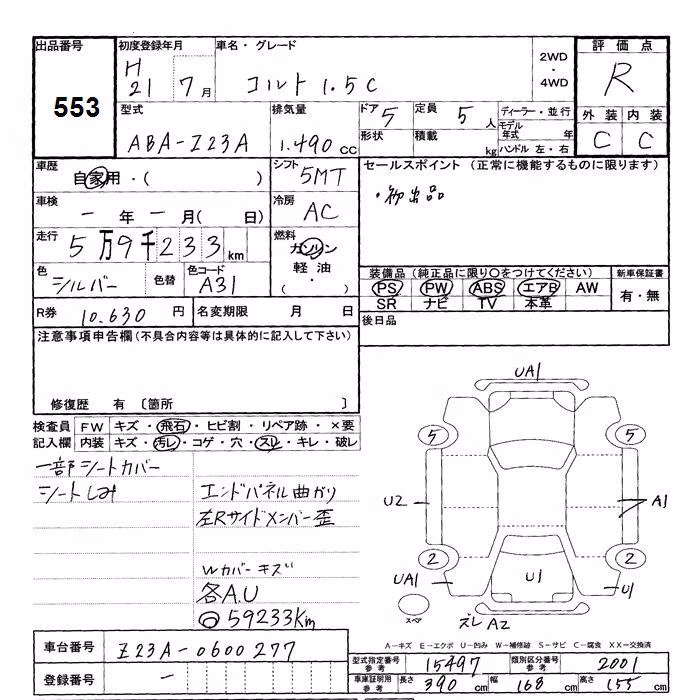 出品番号
553
初度登録年月
H21 7月
車名・グレード
コルト1.5C
2WD
・
4WD
評価点
R
外装 内装
C C
型式
ABA-Z23A
排気量
1.490 cc
ドア 5
定員 5人
形状
積載 kg
ディーラー・並行
モデル年式 年
ハンドル 左・右
車歴
自家用・( )
シフト
5MT
車検
ー年ー月( 日)
冷房
AC
走行
5万9千233km
燃料
ガソリン
軽油
・
( )
色
シルバー
色替
色コード
A31
セールスポイント (正常に機能するものに限ります)
・初出品
装備品 (純正品に限り○をつけてください)
PS PW ABS エアB AW
SR ナビ TV 本革
新車保証書
有・無
R券 10.630 円
名変期限 月 日
後日品
注意事項申告欄 (不具合内容等は具体的に記入して下さい)
修復歴 有 〔箇所 〕
検査員記入欄
FW キズ・飛石・ヒビ割・リペア跡・×要
内装 キズ・汚レ・コゲ・穴・スレ・キレ・破レ
一部シートカバー
シートしみ
エンドパネル曲がり
左Rサイドメンバー歪
Wカバーキズ
各A.U
◎59233Km
UA1
5 5
U2
A1
2 2
UA1
U1
U1
スペア
ズレA2
A-キズ E-エクボ U-凹み W-補修跡 S-サビ C-腐食 XX-交換済
車台番号 Z23A-0600277
登録番号 ー
型式指定番号 参考 15497
類別区分番号 参考 2001
車庫証明用 参考 長さ 390 cm 幅 168 cm 高さ 155 cm